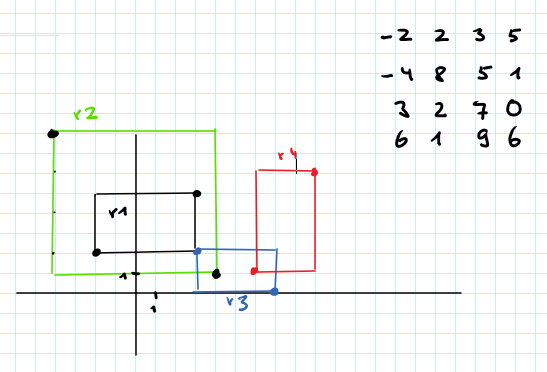 -2 2 3 5
-4 8 5 1
3 2 7 0
6 1 9 6
r2
r4
r1
1
1
r3